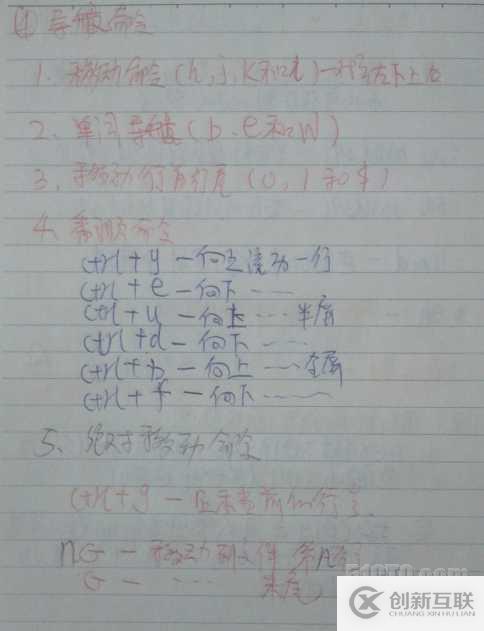 ① 导航命令
1. 移动命令(h、j、k和l)—对应左下上右
2、单词导航(b、e和w)
3、移动行首行尾(0、|和$)
4、翻页命令
ctrl+y —向上滚动一行
ctrl+e —向下……
ctrl+u —向上…半屏
ctrl+d —向下……
ctrl+b —向上…全屏
ctrl+f —向下……
5、绝对移动命令
ctrl+g —显示当前的行号
nG — 移动到文件 第n行
G — … 末尾
创新互联